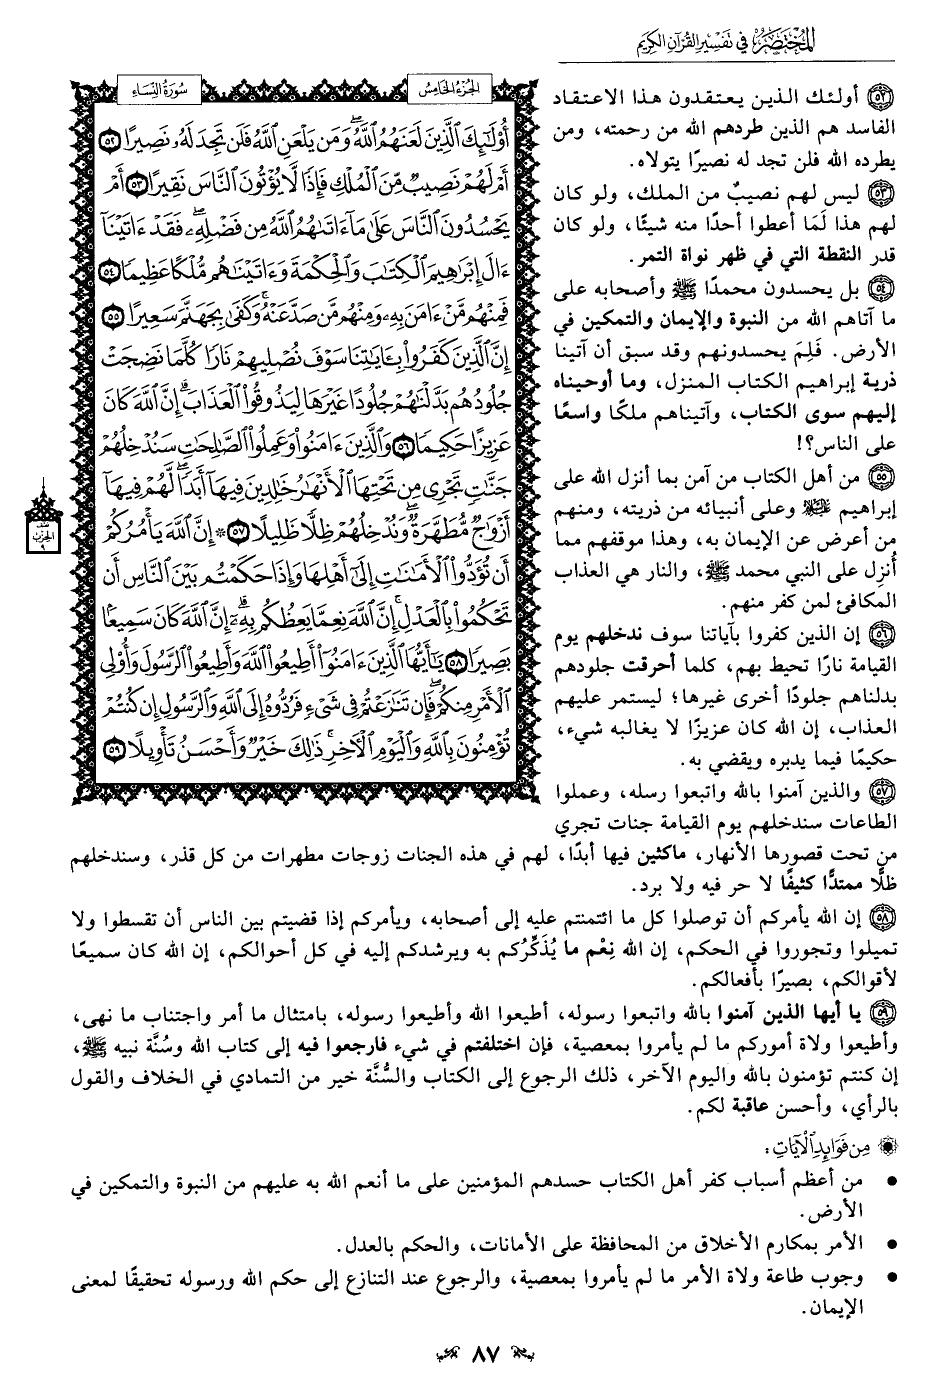 المختصر في تفسير القرآن الكريم
الجزء الخامس
سورة النساء
أُوْلَٰٓئِكَ ٱلَّذِينَ لَعَنَهُمُ ٱللَّهُۖ وَمَن يَلۡعَنِ ٱللَّهُ فَلَن تَجِدَ لَهُۥ نَصِيرًا ٥٢
أَمۡ لَهُمۡ نَصِيبٞ مِّنَ ٱلۡمُلۡكِ فَإِذٗا لَّا يُؤۡتُونَ ٱلنَّاسَ نَقِيرًا ٥٣ أَمۡ
يَحۡسُدُونَ ٱلنَّاسَ عَلَىٰ مَآ ءَاتَىٰهُمُ ٱللَّهُ مِن فَضۡلِهِۦۖ فَقَدۡ ءَاتَيۡنَآ
ءَالَ إِبۡرَٰهِيمَ ٱلۡكِتَٰبَ وَٱلۡحِكۡمَةَ وَءَاتَيۡنَٰهُم مُّلۡكًا عَظِيمٗا ٥٤
فَمِنۡهُم مَّنۡ ءَامَنَ بِهِۦ وَمِنۡهُم مَّن صَدَّ عَنۡهُۚ وَكَفَىٰ بِجَهَنَّمَ سَعِيرًا ٥٥
إِنَّ ٱلَّذِينَ كَفَرُواْ بِـَٔايَٰتِنَا سَوۡفَ نُصۡلِيهِمۡ نَارٗا كُلَّمَا نَضِجَتۡ
جُلُودُهُم بَدَّلۡنَٰهُمۡ جُلُودًا غَيۡرَهَا لِيَذُوقُواْ ٱلۡعَذَابَۗ إِنَّ ٱللَّهَ كَانَ
عَزِيزًا حَكِيمٗا ٥٦ وَٱلَّذِينَ ءَامَنُواْ وَعَمِلُواْ ٱلصَّٰلِحَٰتِ سَنُدۡخِلُهُمۡ
جَنَّٰتٖ تَجۡرِي مِن تَحۡتِهَا ٱلۡأَنۡهَٰرُ خَٰلِدِينَ فِيهَآ أَبَدٗاۖ لَّهُمۡ فِيهَآ
أَزۡوَٰجٞ مُّطَهَّرَةٞۖ وَنُدۡخِلُهُمۡ ظِلّٗا ظَلِيلًا ٥٧ ۞ إِنَّ ٱللَّهَ يَأۡمُرُكُمۡ
أَن تُؤَدُّواْ ٱلۡأَمَٰنَٰتِ إِلَىٰٓ أَهۡلِهَا وَإِذَا حَكَمۡتُم بَيۡنَ ٱلنَّاسِ أَن
تَحۡكُمُواْ بِٱلۡعَدۡلِۚ إِنَّ ٱللَّهَ نِعِمَّا يَعِظُكُم بِهِۦٓۗ إِنَّ ٱللَّهَ كَانَ سَمِيعَۢا
بَصِيرٗا ٥٨ يَٰٓأَيُّهَا ٱلَّذِينَ ءَامَنُوٓاْ أَطِيعُواْ ٱللَّهَ وَأَطِيعُواْ ٱلرَّسُولَ وَأُوْلِي
ٱلۡأَمۡرِ مِنكُمۡۖ فَإِن تَنَٰزَعۡتُمۡ فِي شَيۡءٖ فَرُدُّوهُ إِلَى ٱللَّهِ وَٱلرَّسُولِ إِن كُنتُمۡ
تُؤۡمِنُونَ بِٱللَّهِ وَٱلۡيَوۡمِ ٱلۡأٓخِرِۚ ذَٰلِكَ خَيۡرٞ وَأَحۡسَنُ تَأۡوِيلًا ٥٩
الحزب
٩
٥٢ أولئك الذين يعتقدون هذا الاعتقاد
الفاسد هم الذين طردهم الله من رحمته، ومن
يطرده الله فلن تجد له نصيرًا يتولاه.
٥٣ ليس لهم نصيبٌ من الملك، ولو كان
لهم هذا لَمَا أعطوا أحدًا منه شيئًا، ولو كان
قدر النقطة التي في ظهر نواة التمر.
٥٤ بل يحسدون محمدًا ﷺ وأصحابه على
ما آتاهم الله من النبوة والإيمان والتمكين في
الأرض. فَلِمَ يحسدونهم وقد سبق أن آتينا
ذرية إبراهيم الكتاب المنزل، وما أوحيناه
إليهم سوى الكتاب، وآتيناهم ملكًا واسعًا
على الناس؟!
٥٥ من أهل الكتاب من آمن بما أنزل الله على
إبراهيم وعلى أنبيائه من ذريته، ومنهم
من أعرض عن الإيمان به، وهذا موقفهم مما
أُنزِل على النبي محمد ﷺ، والنار هي العذاب
المكافئ لمن كفر منهم.
٥٦ إن الذين كفروا بآياتنا سوف ندخلهم يوم
القيامة نارًا تحيط بهم، كلما أحرقت جلودهم
بدلناهم جلودًا أخرى غيرها؛ ليستمر عليهم
العذاب، إن الله كان عزيزًا لا يغالبه شيء،
حكيمًا فيما يدبره ويقضي به.
٥٧ والذين آمنوا بالله واتبعوا رسله، وعملوا
الطاعات سندخلهم يوم القيامة جنات تجري
من تحت قصورها الأنهار، ماكثين فيها أبدًا، لهم في هذه الجنات زوجات مطهرات من كل قذر، وسندخلهم
ظلًّا ممتدًّا كثيفًا لا حر فيه ولا برد.
٥٨ إن الله يأمركم أن توصلوا كل ما ائتمنتم عليه إلى أصحابه، ويأمركم إذا قضيتم بين الناس أن تقسطوا ولا
تميلوا وتجوروا في الحكم، إن الله نِعْم ما يُذَكِّرُكم به ويرشدكم إليه في كل أحوالكم، إن الله كان سميعًا
لأقوالكم، بصيرًا بأفعالكم.
٥٩ يا أيها الذين آمنوا بالله واتبعوا رسوله، أطيعوا الله وأطيعوا رسوله، بامتثال ما أمر واجتناب ما نهى،
وأطيعوا ولاة أموركم ما لم يأمروا بمعصية، فإن اختلفتم في شيء فارجعوا فيه إلى كتاب الله وسُنَّة نبيه ﷺ،
إن كنتم تؤمنون بالله واليوم الآخر، ذلك الرجوع إلى الكتاب والسُّنَّة خير من التمادي في الخلاف والقول
بالرأي، وأحسن عاقبة لكم.
من فوائد الآيات:
• من أعظم أسباب كفر أهل الكتاب حسدهم المؤمنين على ما أنعم الله به عليهم من النبوة والتمكين في
الأرض.
• الأمر بمكارم الأخلاق من المحافظة على الأمانات، والحكم بالعدل.
• وجوب طاعة ولاة الأمر ما لم يأمروا بمعصية، والرجوع عند التنازع إلى حكم الله ورسوله تحقيقًا لمعنى
الإيمان.
٨٧